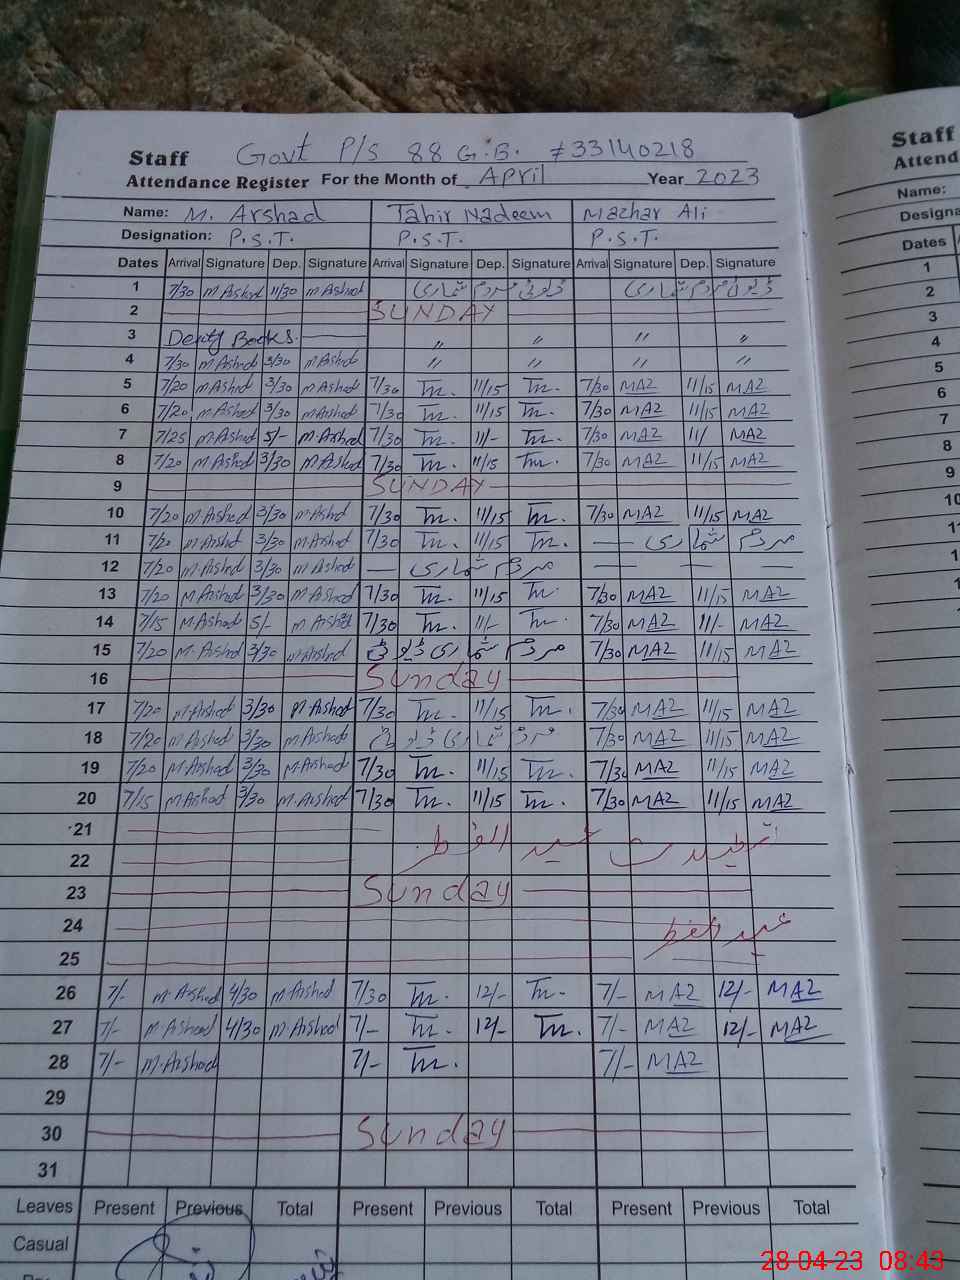 Staff Govt P/S 88 G.B. #33140218
Attendance Register For the Month of April Year 2023
Name: M. Arshad Tahir Nadeem Mazhar Ali
Designation: P.S.T. P.S.T. P.S.T.
Dates Arrival Signature Dep. Signature Arrival Signature Dep. Signature Arrival Signature Dep. Signature
1 7/30 M Arshad 11/30 M Arshad ڈیوٹی مردم شماری ڈیوٹی مردم شماری
2 SUNDAY
3 Books. " " " "
4 7/30 M Arshad 3/30 M Arshad " " " "
5 7/20 M Arshad 3/30 M Arshad 7/30 Tn. 11/15 Tn. 7/30 MAZ 11/15 MAZ
6 7/20 M Arshad 3/30 M Arshad 7/30 Tn. 11/15 Tn. 7/30 MAZ 11/15 MAZ
7 7/25 M Arshad 5/- M Arshad 7/30 Tn. 11/- Tn. 7/30 MAZ 11/ MAZ
8 7/20 M Arshad 3/30 M Arshad 7/30 Tn. 11/15 Tn. 7/30 MAZ 11/15 MAZ
9 SUNDAY
10 7/20 M Arshad 3/30 M Arshad 7/30 Tn. 11/15 Tn. 7/30 MAZ 11/15 MAZ
11 7/20 M Arshad 3/30 M Arshad 7/30 Tn. 11/15 Tn. مردم شماری
12 7/20 M Arshad 3/30 M Arshad مردم شماری
13 7/20 M Arshad 3/30 M Arshad 7/30 Tn. 11/15 Tn. 7/30 MAZ 11/15 MAZ
14 7/15 M Arshad 5/- M Arshad 7/30 Tn. 11/- Tn. 7/30 MAZ 11/- MAZ
15 7/20 M Arshad 3/30 M Arshad مردم شماری ڈیوٹی 7/30 MAZ 11/15 MAZ
16 Sunday
17 7/20 M Arshad 3/30 M Arshad 7/30 Tn. 11/15 Tn. 7/30 MAZ 11/15 MAZ
18 7/20 M Arshad 3/30 M Arshad مردم شماری ڈیوٹی 7/30 MAZ 11/15 MAZ
19 7/20 M Arshad 3/30 M Arshad 7/30 Tn. 11/15 Tn. 7/30 MAZ 11/15 MAZ
20 7/15 M Arshad 3/30 M Arshad 7/30 Tn. 11/15 Tn. 7/30 MAZ 11/15 MAZ
21 تعطیلات عید الفطر
22
23 Sunday
24 عید الفطر
25
26 7/- M Arshad 4/30 M Arshad 7/30 Tn. 12/- Tn. 7/- MAZ 12/- MAZ
27 7/- M Arshad 4/30 M Arshad 7/- Tn. 12/- Tn. 7/- MAZ 12/- MAZ
28 7/- M Arshad 7/- Tn. 7/- MAZ
29
30 Sunday
31
Leaves Present Previous Total Present Previous Total Present Previous Total
Casual
Staff
Attend
Name:
Designa
Dates
1
2
3
4
5
6
7
8
9
10
28-04-23 08:43